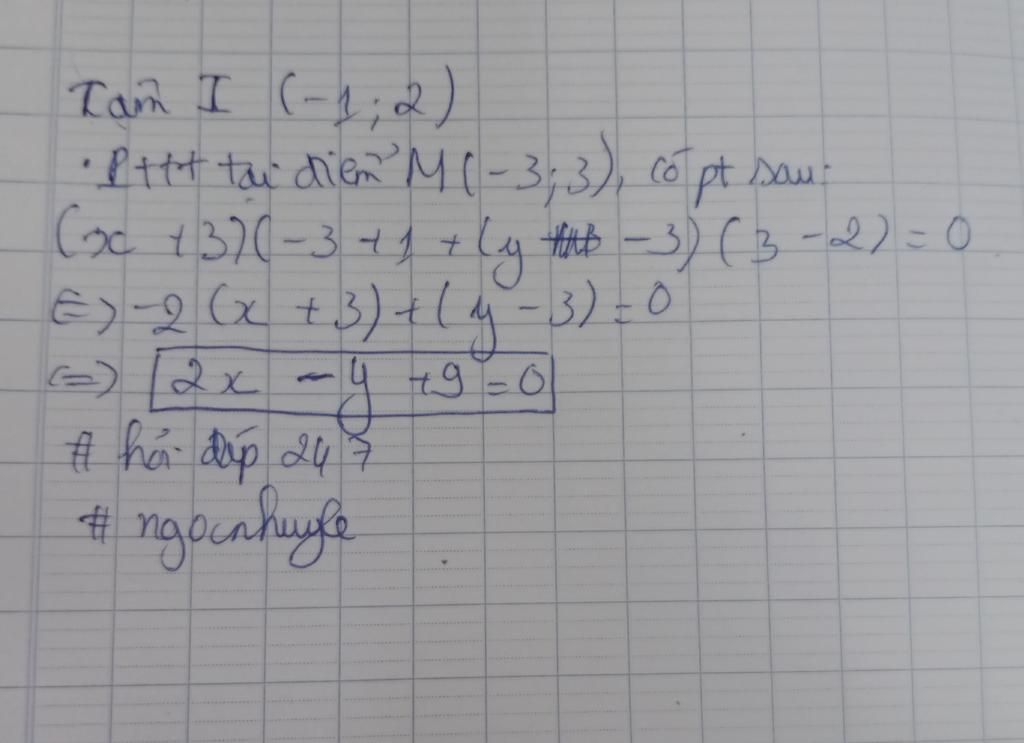 Tâm I (-1; 2)
• Pttt tại điểm M(-3; 3), có pt sau:
(x + 3)(-3 + 1 + (y - 3)(3 - 2) = 0
<=> -2(x + 3) + (y - 3) = 0
<=> 2x - y + 9 = 0
# hỏi đáp 247